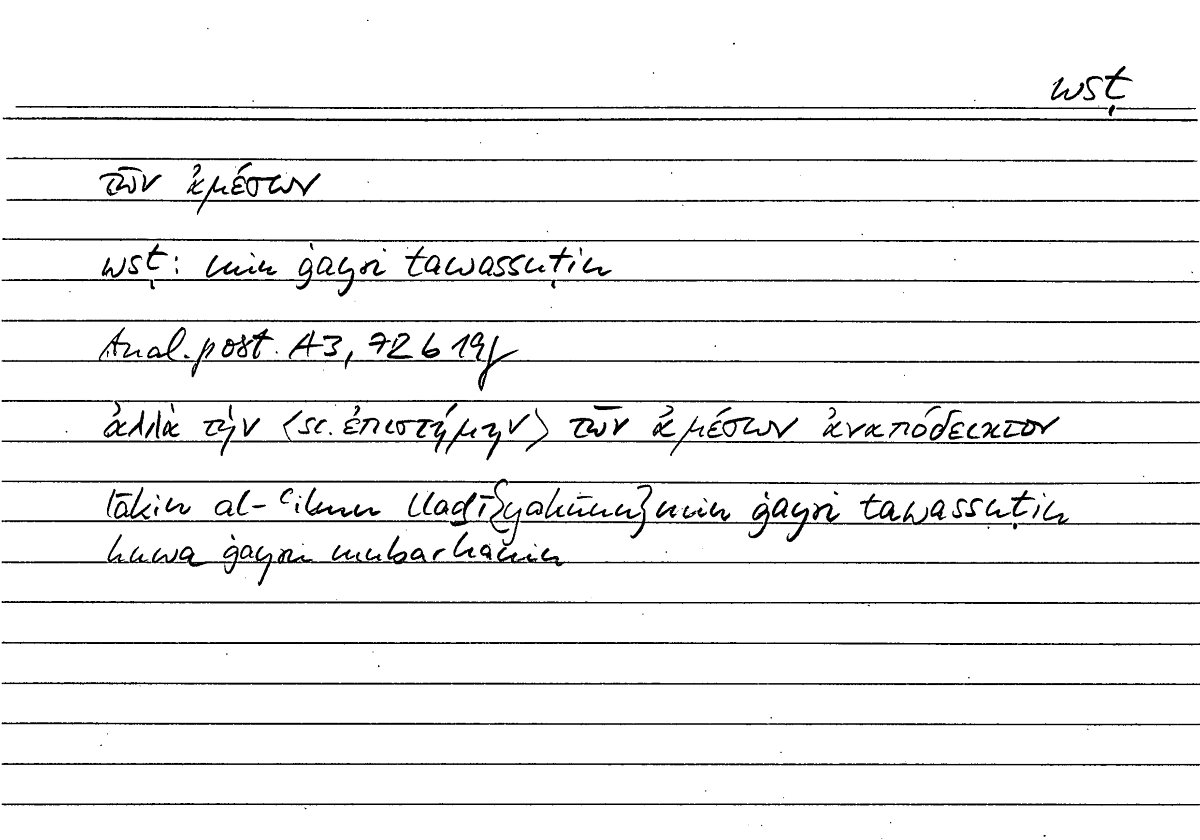 wsṭ
τῶν ἀμέσων
wsṭ: min ġayri tawassuṭin
Anal. post. A3, 72 b 19f
ἀλλὰ τὴν ⟨sc. ἐπιστήμην⟩ τῶν ἀμέσων ἀναπόδεικτον
lākin al-ʿilmu lladī{yakūnu}min ġayri tawassuṭin
huwa ġayru mubarhanin